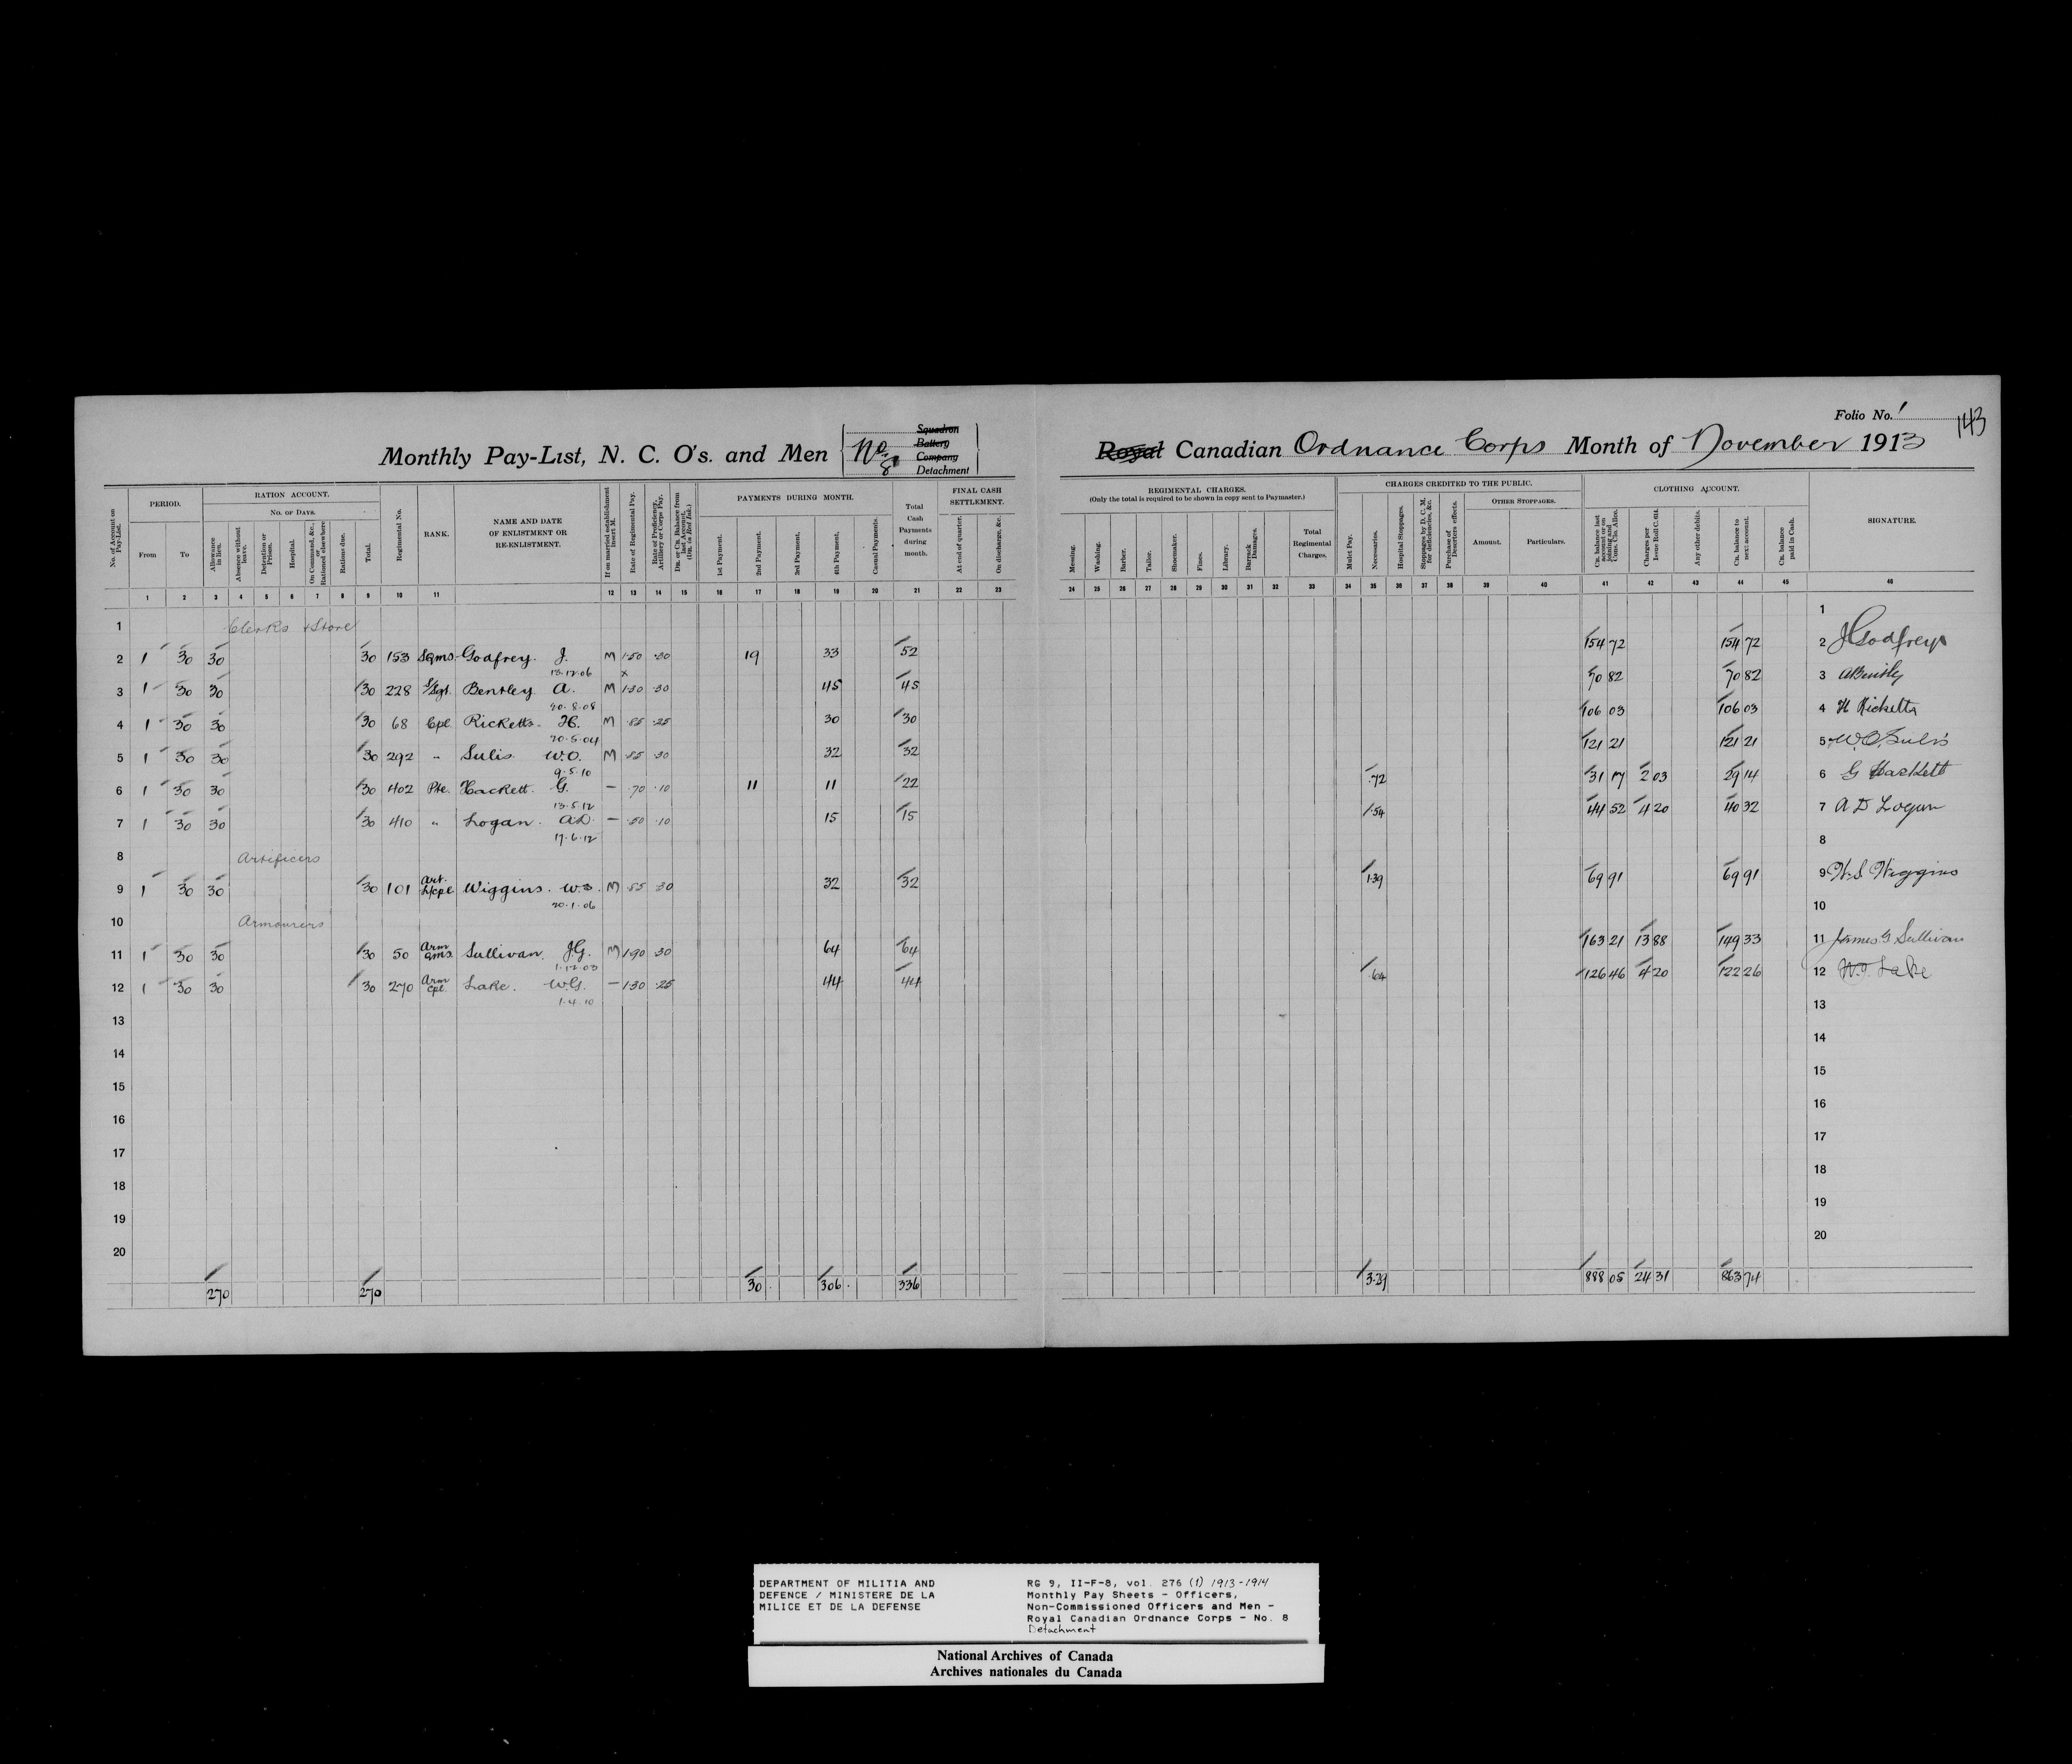 Folio No. 1
143
Monthly Pay-List, N. C. O's. and Men No 8 Squadron Battery Company Detachment Royal Canadian Ordnance Corps Month of November 1913
No. of Account on Pay-List.
PERIOD.
From
To
RATION ACCOUNT.
No. OF DAYS.
Allowance in lieu.
Absence without leave.
Detention or Prison.
Hospital.
On Command, &c., or Rationed elsewhere
Rations due.
Total.
Regimental No.
RANK.
NAME AND DATE OF ENLISTMENT OR RE-ENLISTMENT.
If on married establishment insert M.
Rate of Regimental Pay.
Rate of Proficiency, Artillery or Corps Pay.
Dr. or Cr. Balance from last Account. (Drs. in Red Ink.)
PAYMENTS DURING MONTH.
1st Payment.
2nd Payment.
3rd Payment.
4th Payment.
Casual Payments.
Total Cash Payments during month.
FINAL CASH SETTLEMENT.
At end of quarter.
On discharge, &c.
REGIMENTAL CHARGES.
(Only the total is required to be shown in copy sent to Paymaster.)
Messing.
Washing.
Barber.
Tailor.
Shoemaker.
Fines.
Library.
Barrack Damages.
Total Regimental Charges.
CHARGES CREDITED TO THE PUBLIC.
Mulct Pay.
Necessaries.
Hospital Stoppages.
Stoppages by D. C. M. for deficiencies, &c.
Purchase of Deserters effects.
OTHER STOPPAGES.
Amount.
Particulars.
CLOTHING ACCOUNT.
Cr. balance last account or on joining and Cons. Clo. Allce.
Charges per Issue Roll C. 614.
Any other debits.
Cr. balance to next account.
Cr. balance paid in Cash.
SIGNATURE.
1 2 3 4 5 6 7 8 9 10 11 12 13 14 15 16 17 18 19 20 21 22 23 24 25 26 27 28 29 30 31 32 33 34 35 36 37 38 39 40 41 42 43 44 45 46
1 Clerks & Store 1
2 1 30 30 30 153 SQms. Godfrey. J. M 1.50 .30 19 33 52 154 72 154 72 2 J Godfrey
13.12.06 x
3 1 30 30 30 228 S/Sgt. Bentley A. M 1.30 .30 45 45 70 82 70 82 3 A Bentley
20.8.08
4 1 30 30 30 68 Cpl. Ricketts. H. M .85 .25 30 30 106 03 106 03 4 H Ricketts
20.5.04
5 1 30 30 30 292 " Sulis W.O. M .85 .30 32 32 121 21 121 21 5 W.O. Sulis
9.5.10
6 1 30 30 30 402 Pte. Hackett. G. — .70 .10 11 11 22 .72 31 17 2 03 29 14 6 G Hackett
13.5.12
7 1 30 30 30 410 " Logan. A.D. — .50 .10 15 15 .54 44 52 4 20 40 32 7 A D Logan
17.6.12
8 Artificers 8
9 1 30 30 30 101 Art. L/Cpl Wiggins. W.S. M .85 .30 32 32 1.39 69 91 69 91 9 W.S Wiggins
20.1.06
10 Armourers 10
11 1 30 30 30 50 Arm Qms. Sullivan. J.G. M 1.90 .30 64 64 163 21 13 88 149 33 11 James G Sullivan
1.12.03
12 1 30 30 30 270 Arm Cpl. Lake. W.G. — 1.30 .25 44 44 .64 126 46 4 20 122 26 12 W.G. Lake
1.4.10
13 13
14 14
15 15
16 16
17 17
18 18
19 19
20 20
270 270 30. 306. 336 3.29 888 05 24 31 863 74
DEPARTMENT OF MILITIA AND
DEFENCE / MINISTERE DE LA
MILICE ET DE LA DEFENSE
RG 9, II-F-8, vol. 276 (1) 1913-1914
Monthly Pay Sheets - Officers,
Non-Commissioned Officers and Men -
Royal Canadian Ordnance Corps - No. 8
Detachment
National Archives of Canada
Archives nationales du Canada